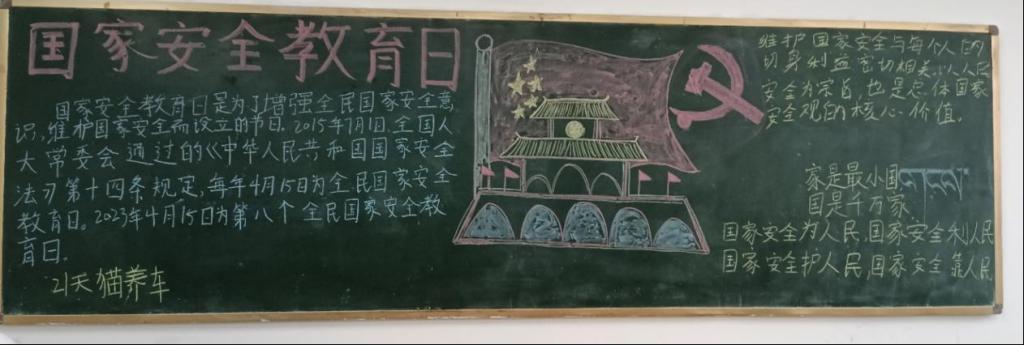 国家安全教育日
国家安全教育日是为了增强全民国家安全意
识,维护国家安全而设立的节日。2015年7月1日,全国人
大常委会通过的《中华人民共和国国家安全
法》第十四条规定,每年4月15日为全民国家安全
教育日。2023年4月15日为第八个全民国家安全教
育日。
21天猫养车
维护国家安全与每个人的
切身利益密切相关,以人民
安全为宗旨,也是总体国家
安全观的核心价值。
家是最小国
国是千万家
国家安全为人民,国家安全利人民
国家安全护人民,国家安全靠人民